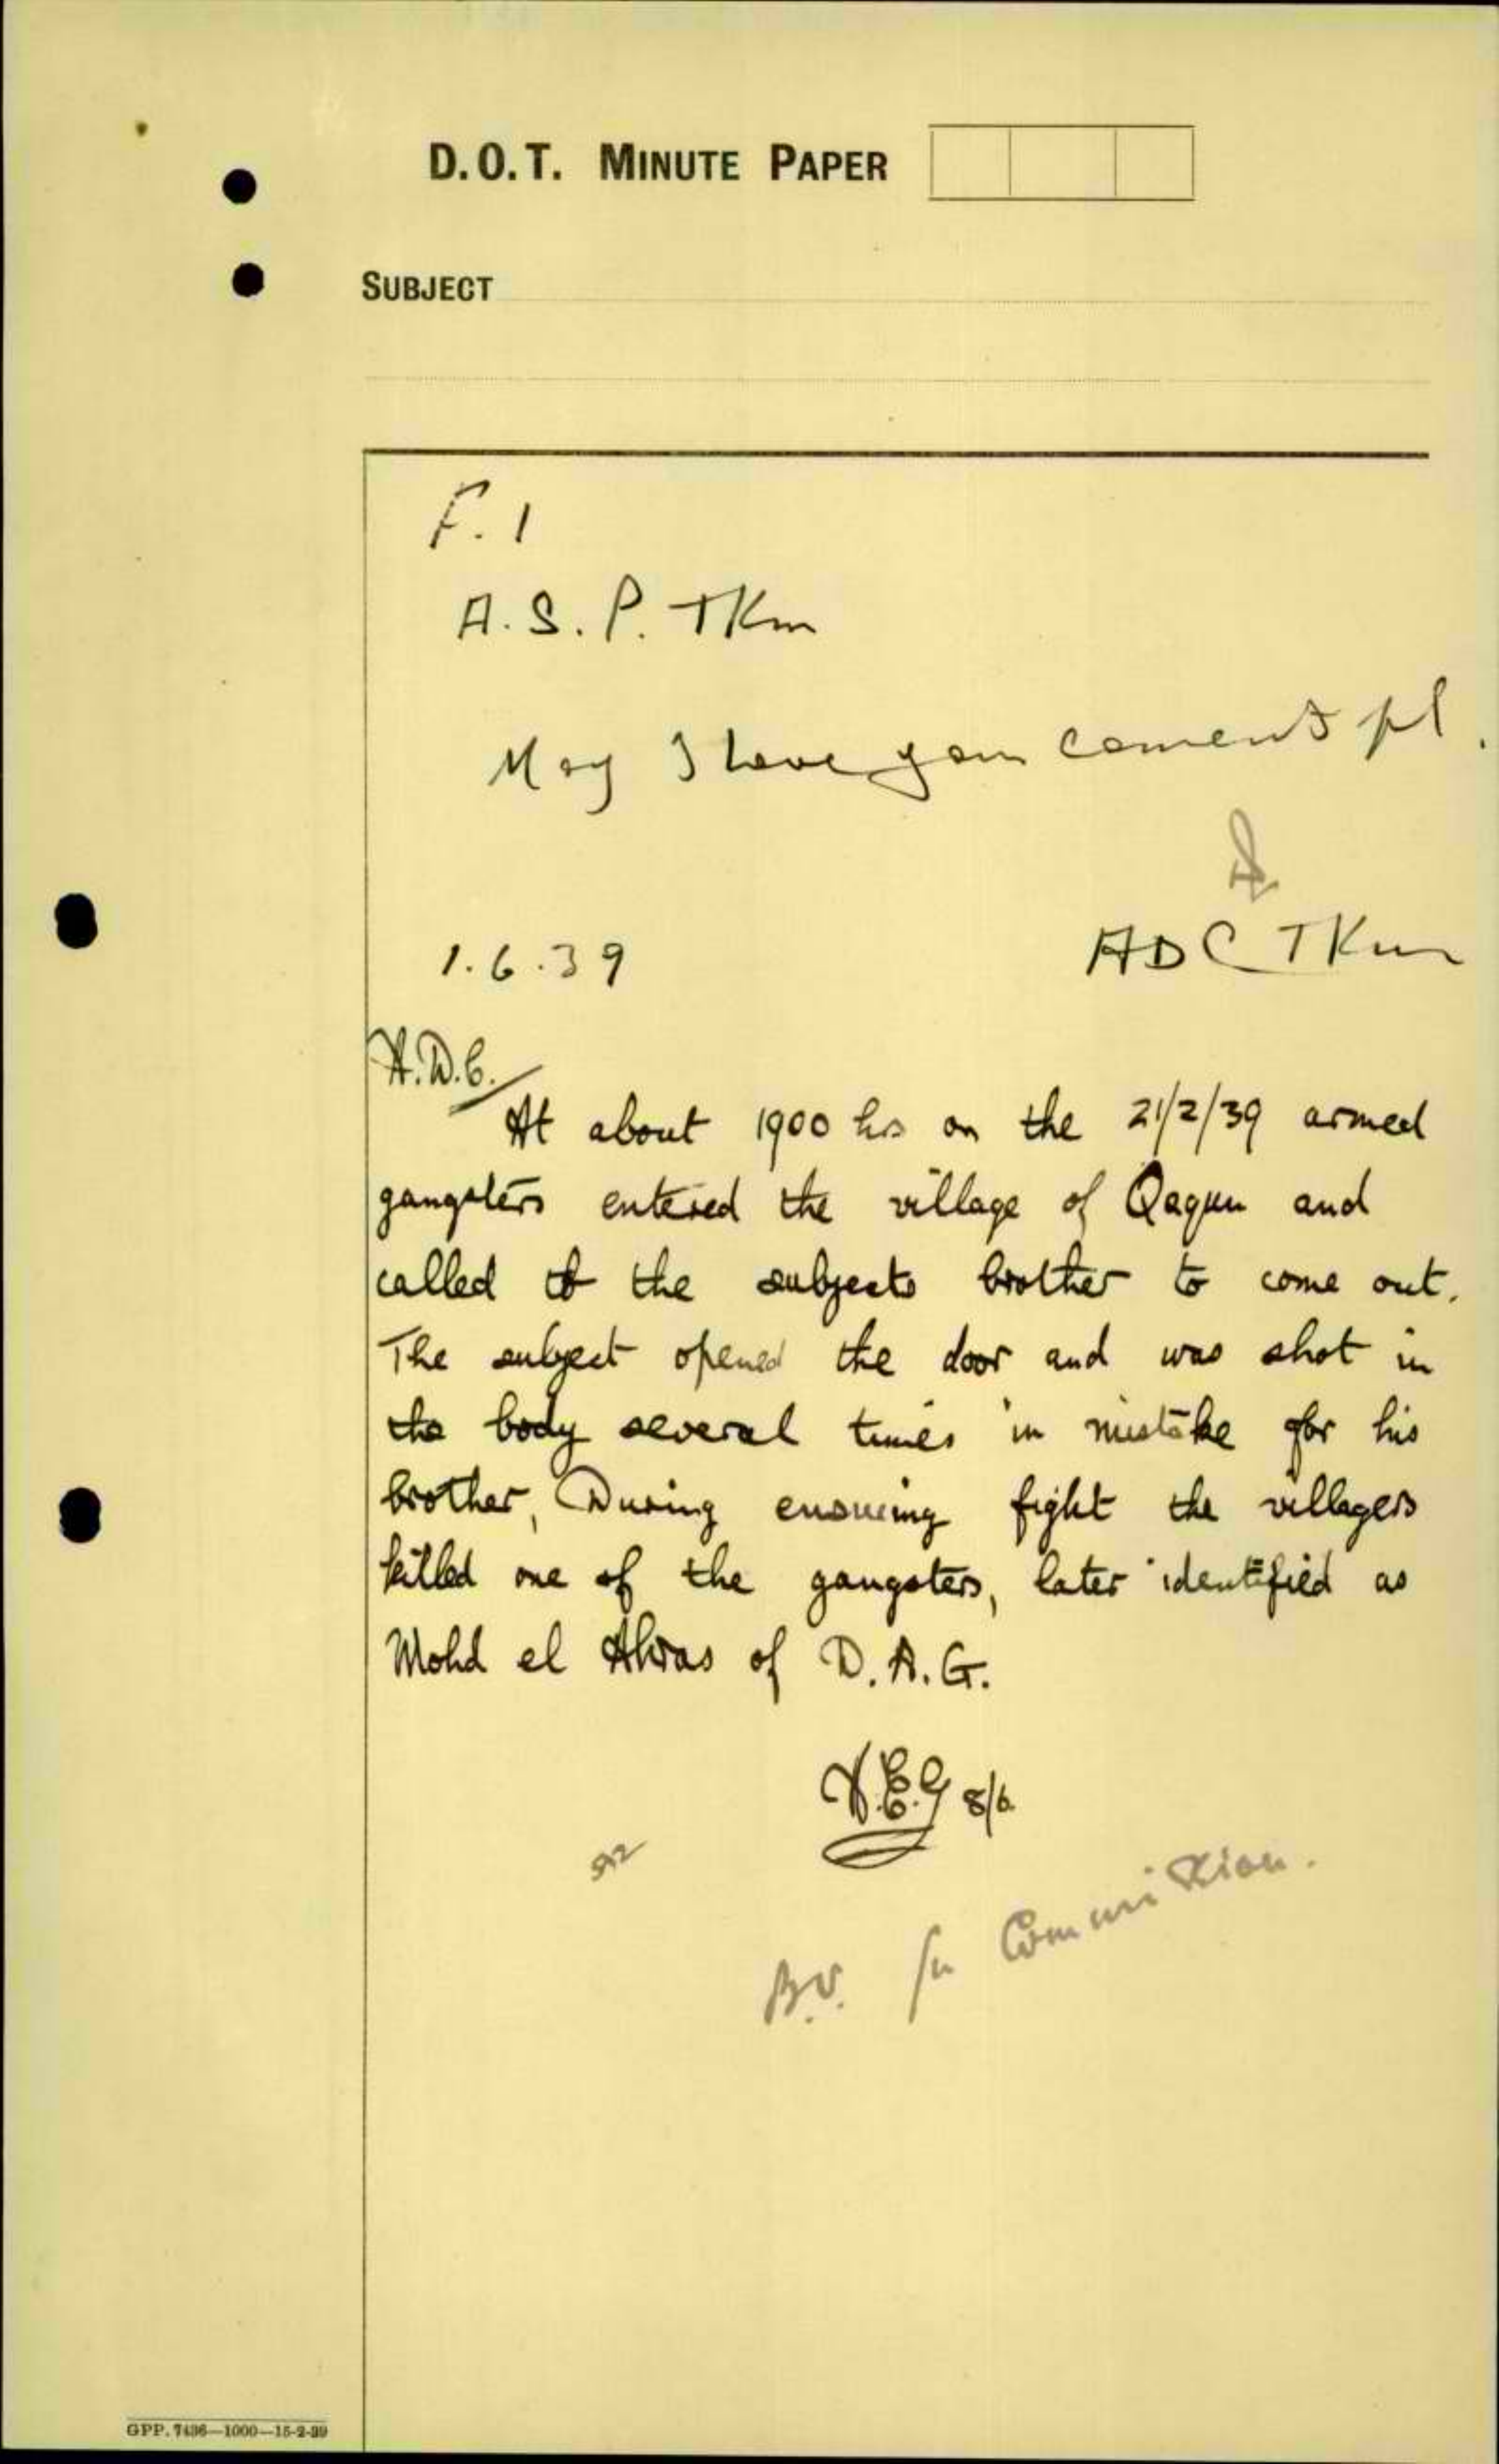 D.O.T. MINUTE PAPER
SUBJECT
F. 1
A. S. P. TKm
May I have your coments pl.
1. 6. 39
ADC TKm
A.D.C.
At about 1900 hrs on the 21/2/39 armed
gangsters entered the village of Qaqun and
called to the subjects brother to come out.
The subject opened the door and was shot in
the body several times in mistake for his
brother, During ensuing fight the villagers
killed one of the gangsters, later identified as
Mohd el of D. A. G.
8/6
B.U.
GPP. 7436—1000—15-2-39